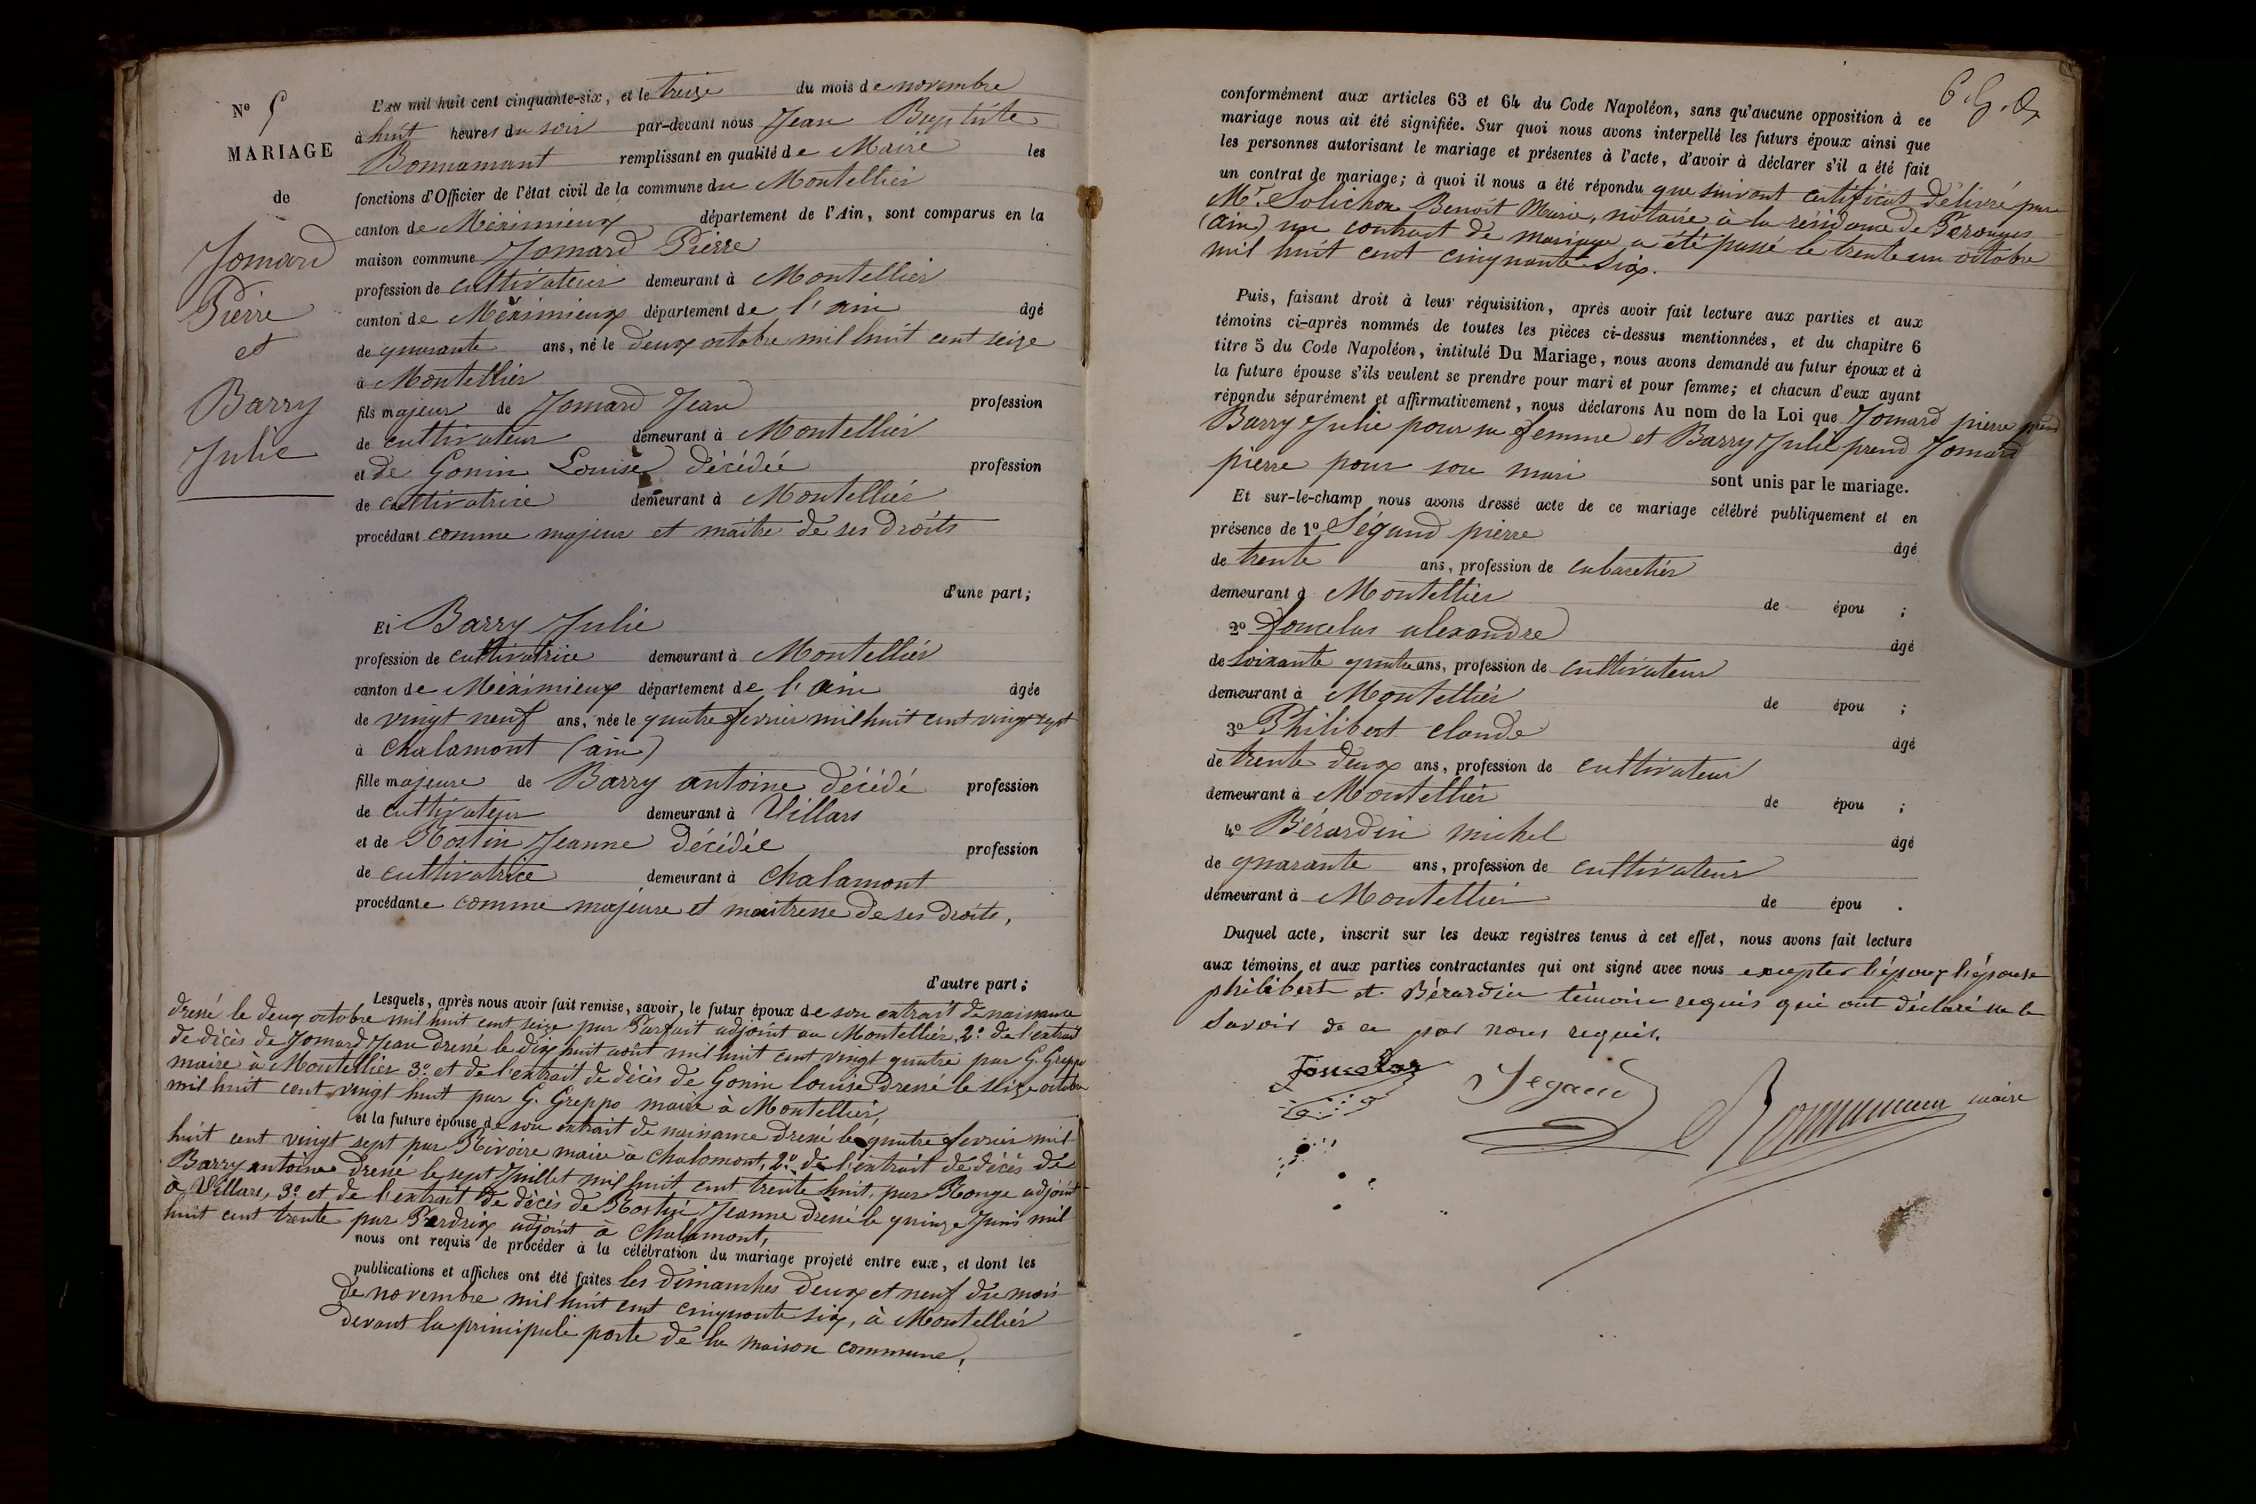 N° 5
MARIAGE
de
Jomard
Pierre
et
Barry
Julie
L'an mil huit cent cinquante-six, et le treize du mois de novembre
à huit heures du soir par-devant nous Jean Baptiste
Bonnamant remplissant en qualité de Maire les
fonctions d'Officier de l'état civil de la commune du Montellier
canton de Méximieux département de l'Ain, sont comparus en la
maison commune Jomard Pierre
profession de cultivateur demeurant à Montellier
canton de Méximieux département de l'ain âgé
de quarante ans, né le deux octobre mil huit cent seize
à Montellier
fils majeur de Jomard Jean profession
de cultivateur demeurant à Montellier
et de Gonin Louise décédée profession
de cultivatrice demeurant à Montellier
procédant comme majeur et maître de ses droits
d'une part;
Et Barry Julie
profession de cultivatrice demeurant à Montellier
canton de Méximieux département de l'ain âgée
de vingt neuf ans, née le quatre fevrier mil huit cent vingt sept
à Chalamont (ain)
fille majeure de Barry antoine décédé profession
de cultivateur demeurant à Villars
et de Rostin Jeanne décédée profession
de cultivatrice demeurant à Chalamont
procédante comme majeure et maitresse de ses droits,
d'autre part;
Lesquels, après nous avoir fait remise, savoir, le futur époux de son extrait de naissance
dressé le deux octobre mil huit cent seize par Parfait adjoint au Montellier, 2° de l'extrait
de décès de Jomard Jean dressé le dix huit août mil huit cent vingt quatre par G. Greppo
maire à Montellier 3° et de l'extrait de décès de Gonin louise dressé le seize octobre
mil huit cent vingt huit par G. Greppo maire à Montellier,
et la future épouse de son extrait de naissance dressé le quatre fevrier mil
huit cent vingt sept par Rivoire maire à Chalamont, 2° de l'extrait de décès de
Barry antoine dressé le sept Juillet mil huit cent trente huit, par Rouge adjoint
à Villars, 3° et de l'extrait de décès de Rostin Jeanne dressé le quinze Juin mil
huit cent trente par Perdrix adjoint à Chalamont,
nous ont requis de procéder à la célébration du mariage projeté entre eux, et dont les
publications et affiches ont été faites les dimanches deux et neuf du mois
de novembre mil huit cent cinquante six, à Montellier
devant la principale porte de la maison commune,
conformément aux articles 63 et 64 du Code Napoléon, sans qu'aucune opposition à ce
mariage nous ait été signifiée. Sur quoi nous avons interpellé les futurs époux ainsi que
les personnes autorisant le mariage et présentes à l'acte, d'avoir à déclarer s'il a été fait
un contrat de mariage; à quoi il nous a été répondu que suivant certificat délivré par
Mr. Solichon Benoît Marie, notaire à la résidance de Perouges
(ain) un contract de mariage a été passé le trente un octobre
mil huit cent cinquante six.
Puis, faisant droit à leur réquisition, après avoir fait lecture aux parties et aux
témoins ci-après nommés de toutes les pièces ci-dessus mentionnées, et du chapitre 6
titre 5 du Code Napoléon, intitulé Du Mariage, nous avons demandé au futur époux et à
la future épouse s'ils veulent se prendre pour mari et pour femme; et chacun d'eux ayant
répondu séparément et affirmativement, nous déclarons Au nom de la Loi que Jomard pierre prend
Barry Julie pour sa femme et Barry Julie prend Jomard
pierre pour son mari sont unis par le mariage.
Et sur-le-champ nous avons dressé acte de ce mariage célébré publiquement et en
présence de 1° Ségaud pierre âgé
de trente ans, profession de cabaretier
demeurant à Montellier de épou ;
2° Foucelas alexandre âgé
de soixante quatre ans, profession de cultivateur
demeurant à Montellier de épou ;
3° Philibert claude âgé
de trente deux ans, profession de cultivateur
demeurant à Montellier de épou ;
4° Bérardin michel âgé
de quarante ans, profession de cultivateur
demeurant à Montellier de épou .
Duquel acte, inscrit sur les deux registres tenus à cet effet, nous avons fait lecture
aux témoins et aux parties contractantes qui ont signé avec nous excepter l'époux l'épouse
philibert et Bérardin témoins requis qui ont déclaré ne le
savoir de ce par nous requis.
Segaud
Bonnamant maire